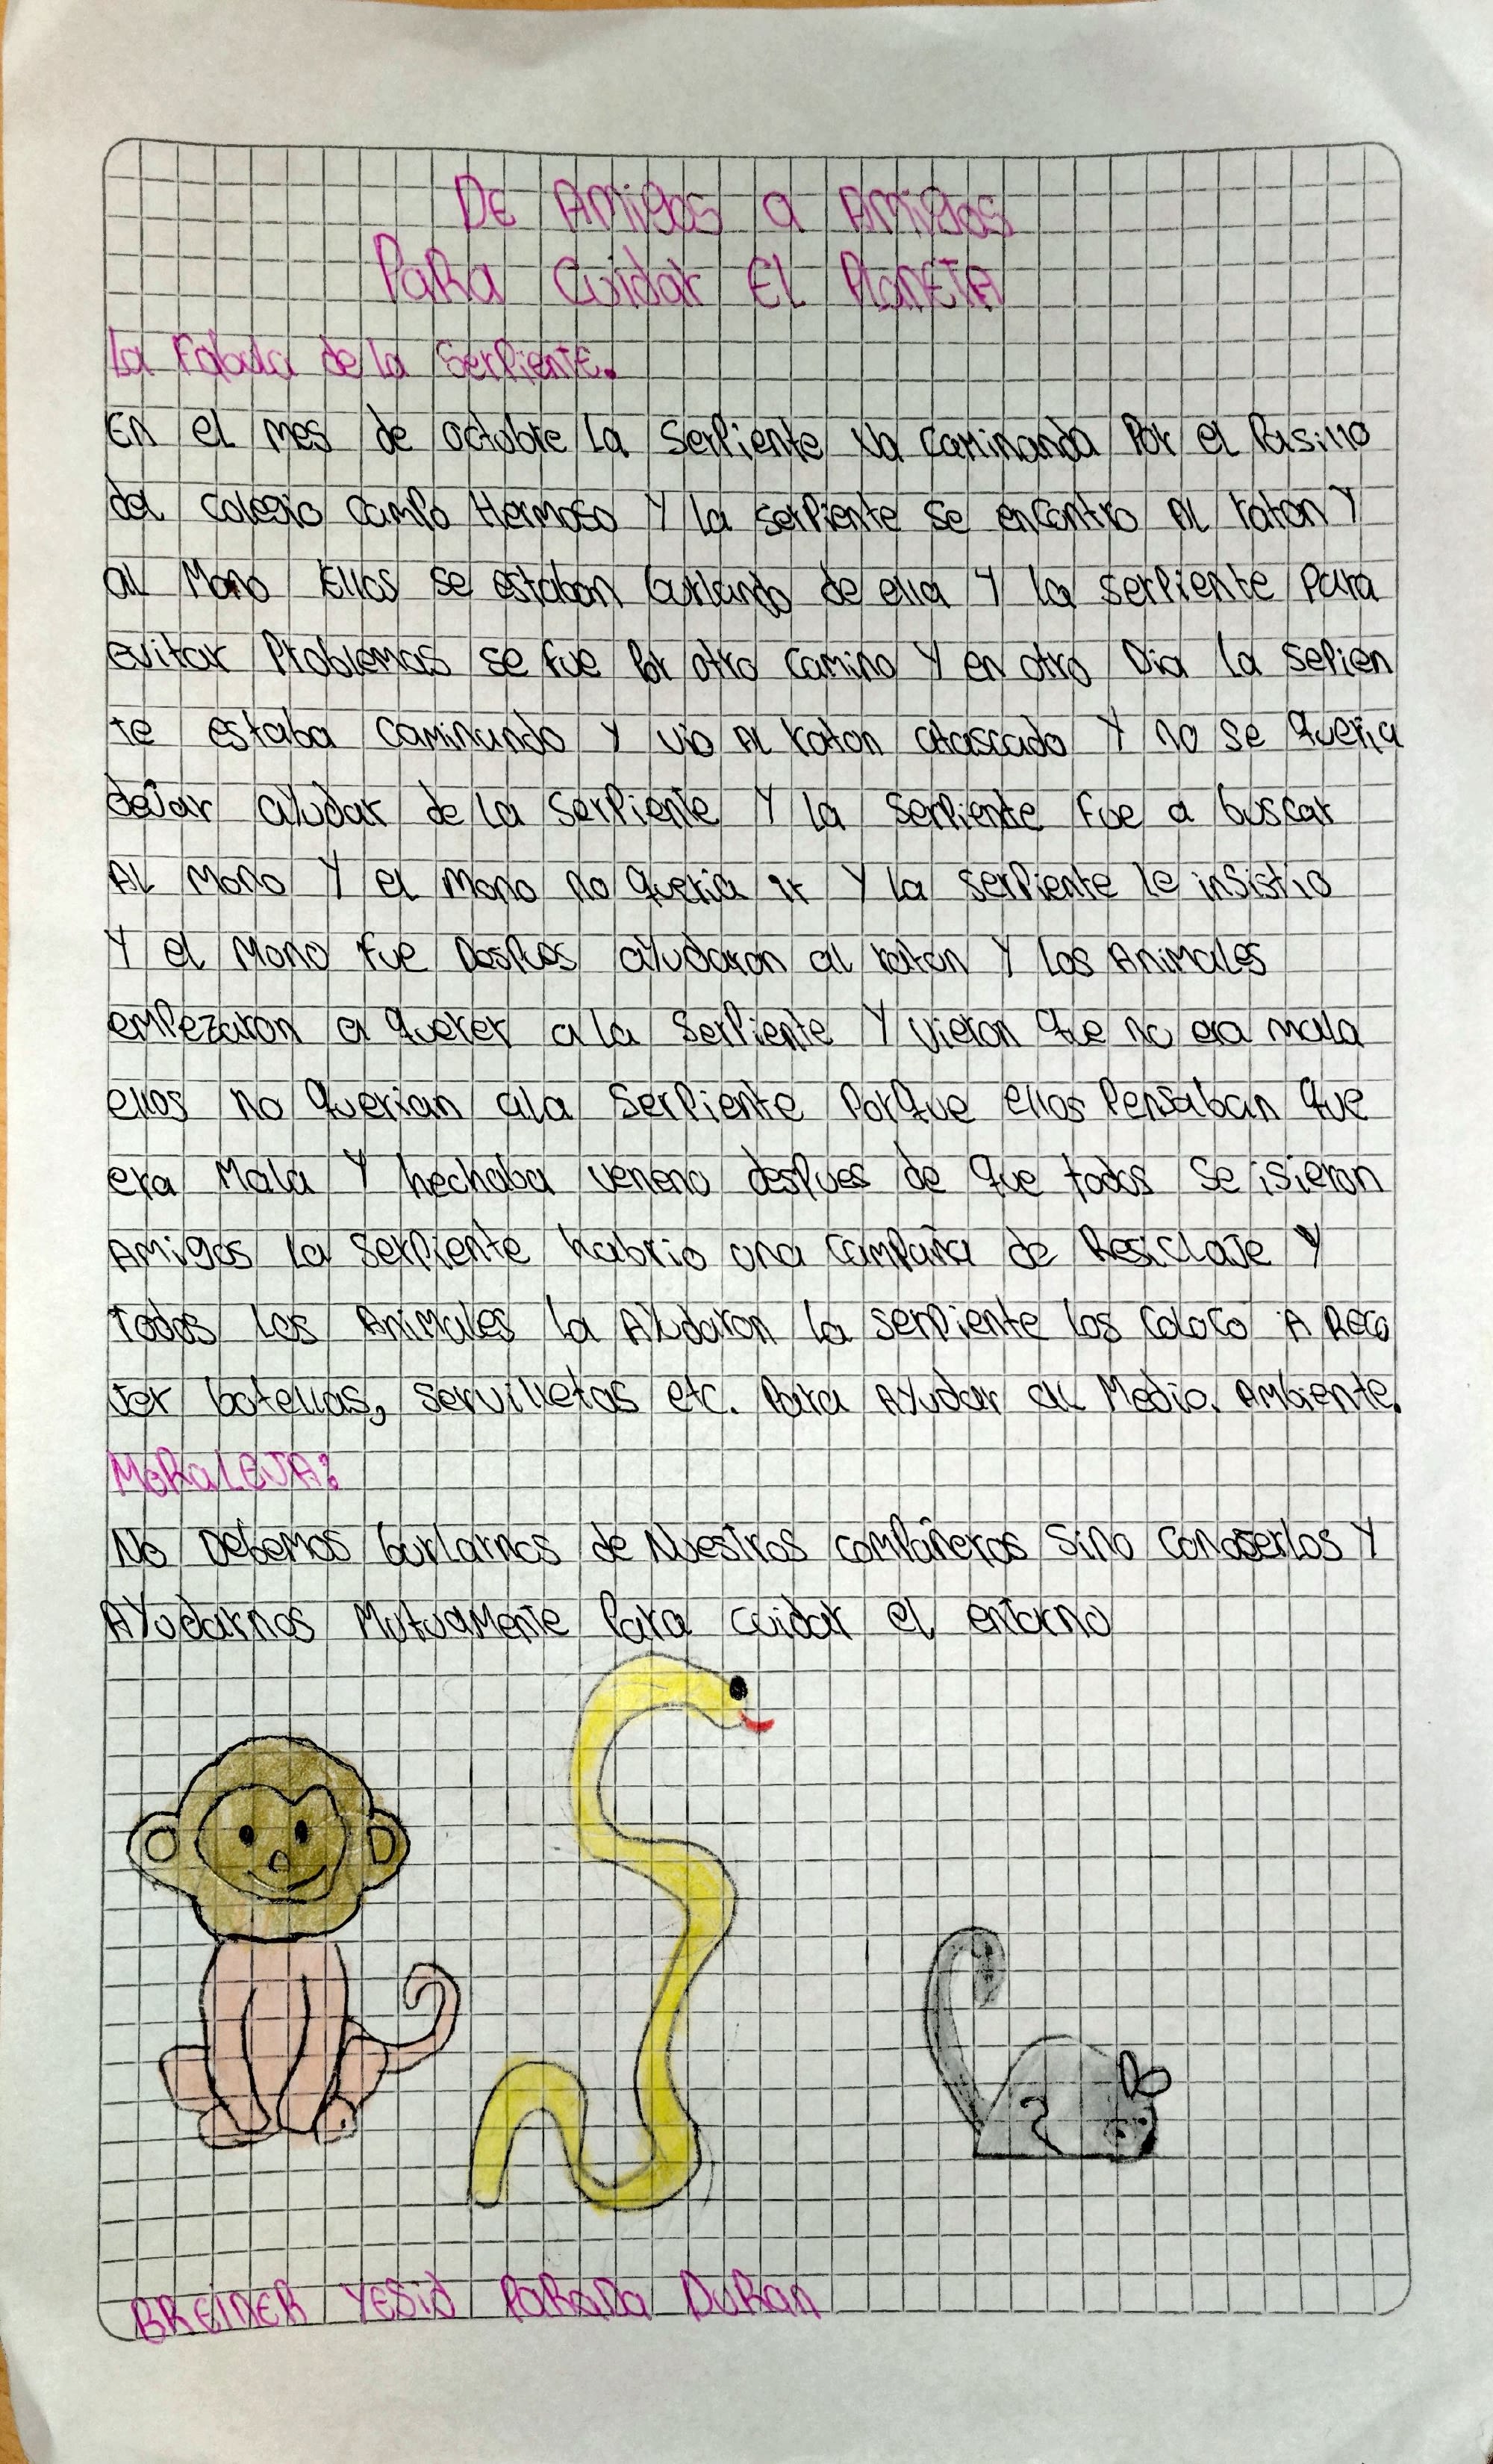 DE AMigos a AMigos
PaRa Cuidar El PlanETA
La Fabula de la SerPienTE.
En el mes de octubre la SerPiente va caminando Por el Pasillo
del colegio campo Hermoso Y la serPiente se encontro Al raton Y
al Mono Ellos se estaban burlando de ella Y la serPiente Para
evitar Problemas se fue Por otro camino Y en otro Dia la sePien
te estaba caminando Y vio Al raton atascado Y no se queria
dejar aYudar de la SerPiente Y la serPiente fue a buscar
AL Mono Y el mono no queria ir Y la serPiente le insistio
Y el Mono fue DesPues aYudaron al raton Y los Animales
emPezaron a querer a la SerPiente Y vieron que no era mala
ellos no querian ala SerPiente Porque ellos Pensaban que
era Mala Y hechaba veneno desPues de que todos se isieron
AMigos la SerPiente habrio una camPaña de ResiclaJe Y
Todos los AniMales la AYudaron la serPiente los coloco A Reco
Jer botellas, servilletas etc. Para AYudar al Medio. AMbiente.
MORaLEJA:
No Debemos burlarnos de Nuestros comPañeros Sino conoserlos Y
AYudarnos MutuaMente Para cuidar el entorno
BREINER YESiD PaRaDa DuRan